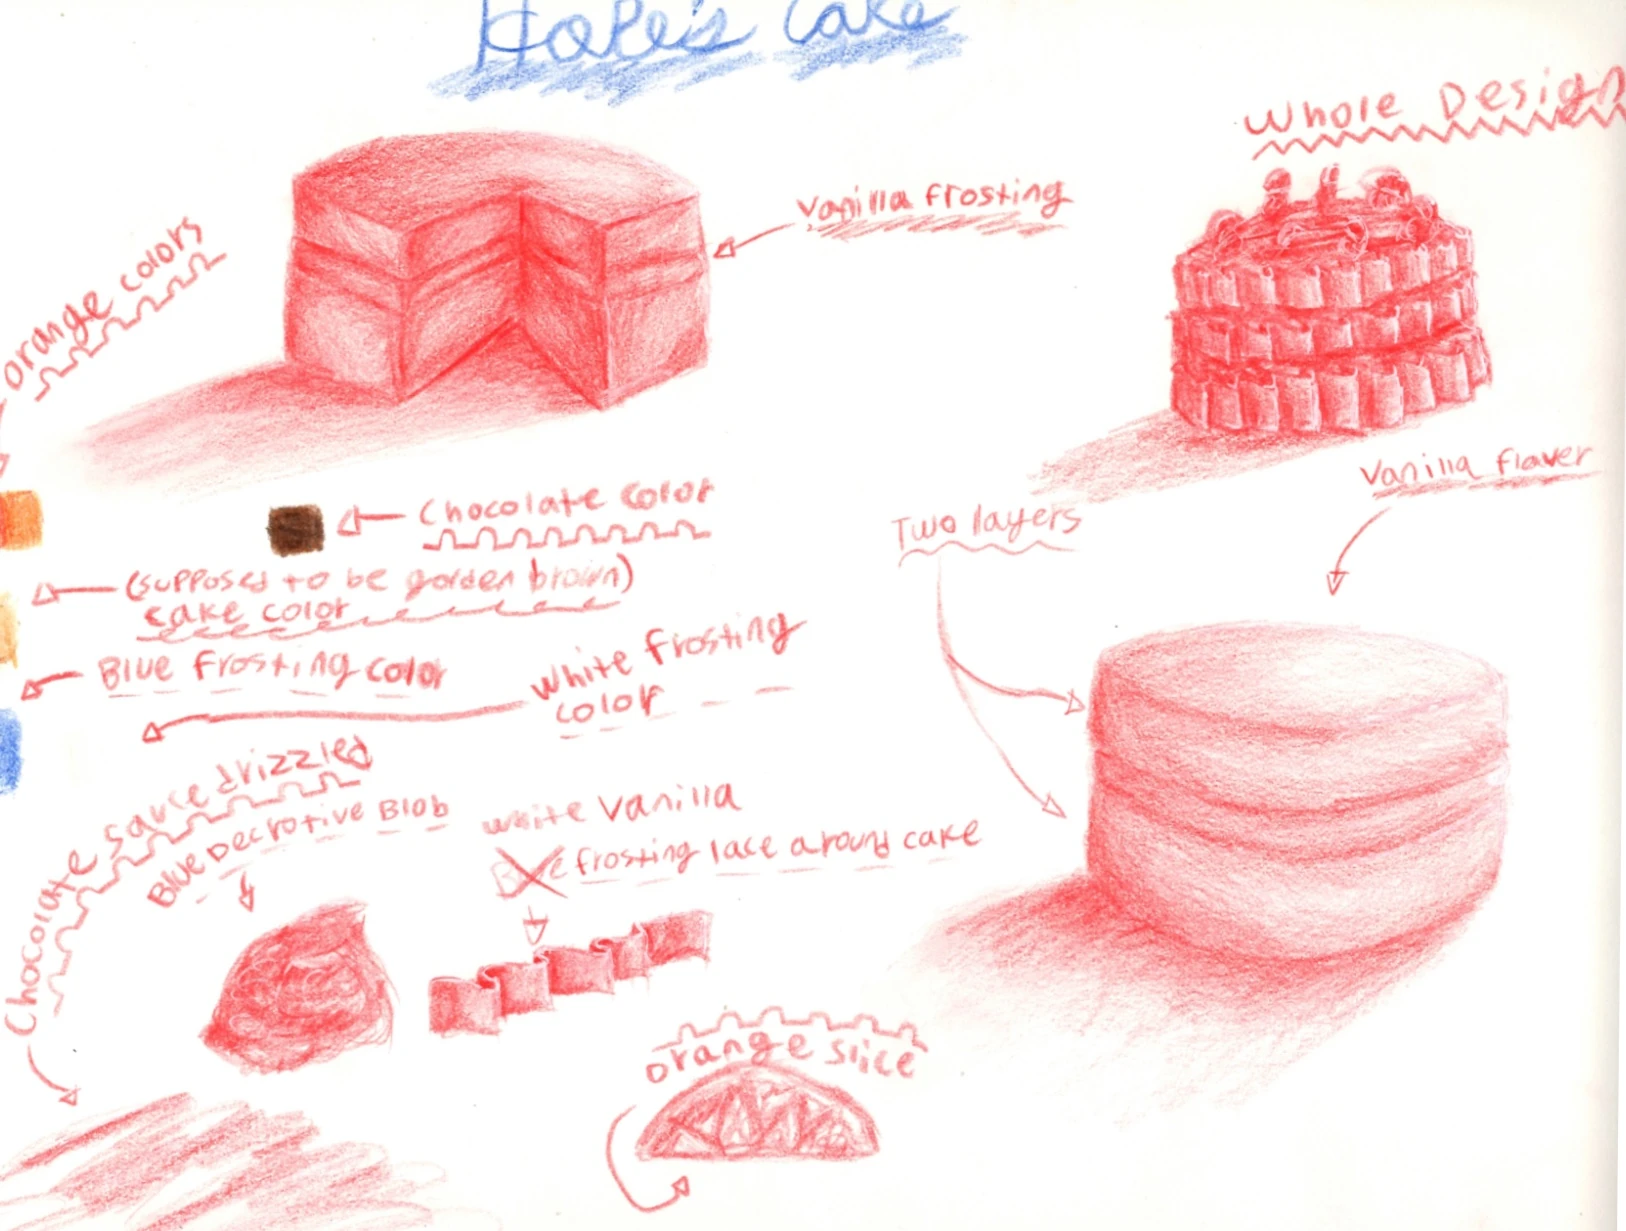 HoPe's Cake
Whole Design
Vanilla frosting
orange colors
Vanilla flaver
Chocolate color
Two layers
(supposed to be golden brown)
cake color
Blue Frosting color
white frosting
color
Chocolate sauce drizzled
Blue Decrotive Blob
white Vanilla
frosting lace around cake
orange slice